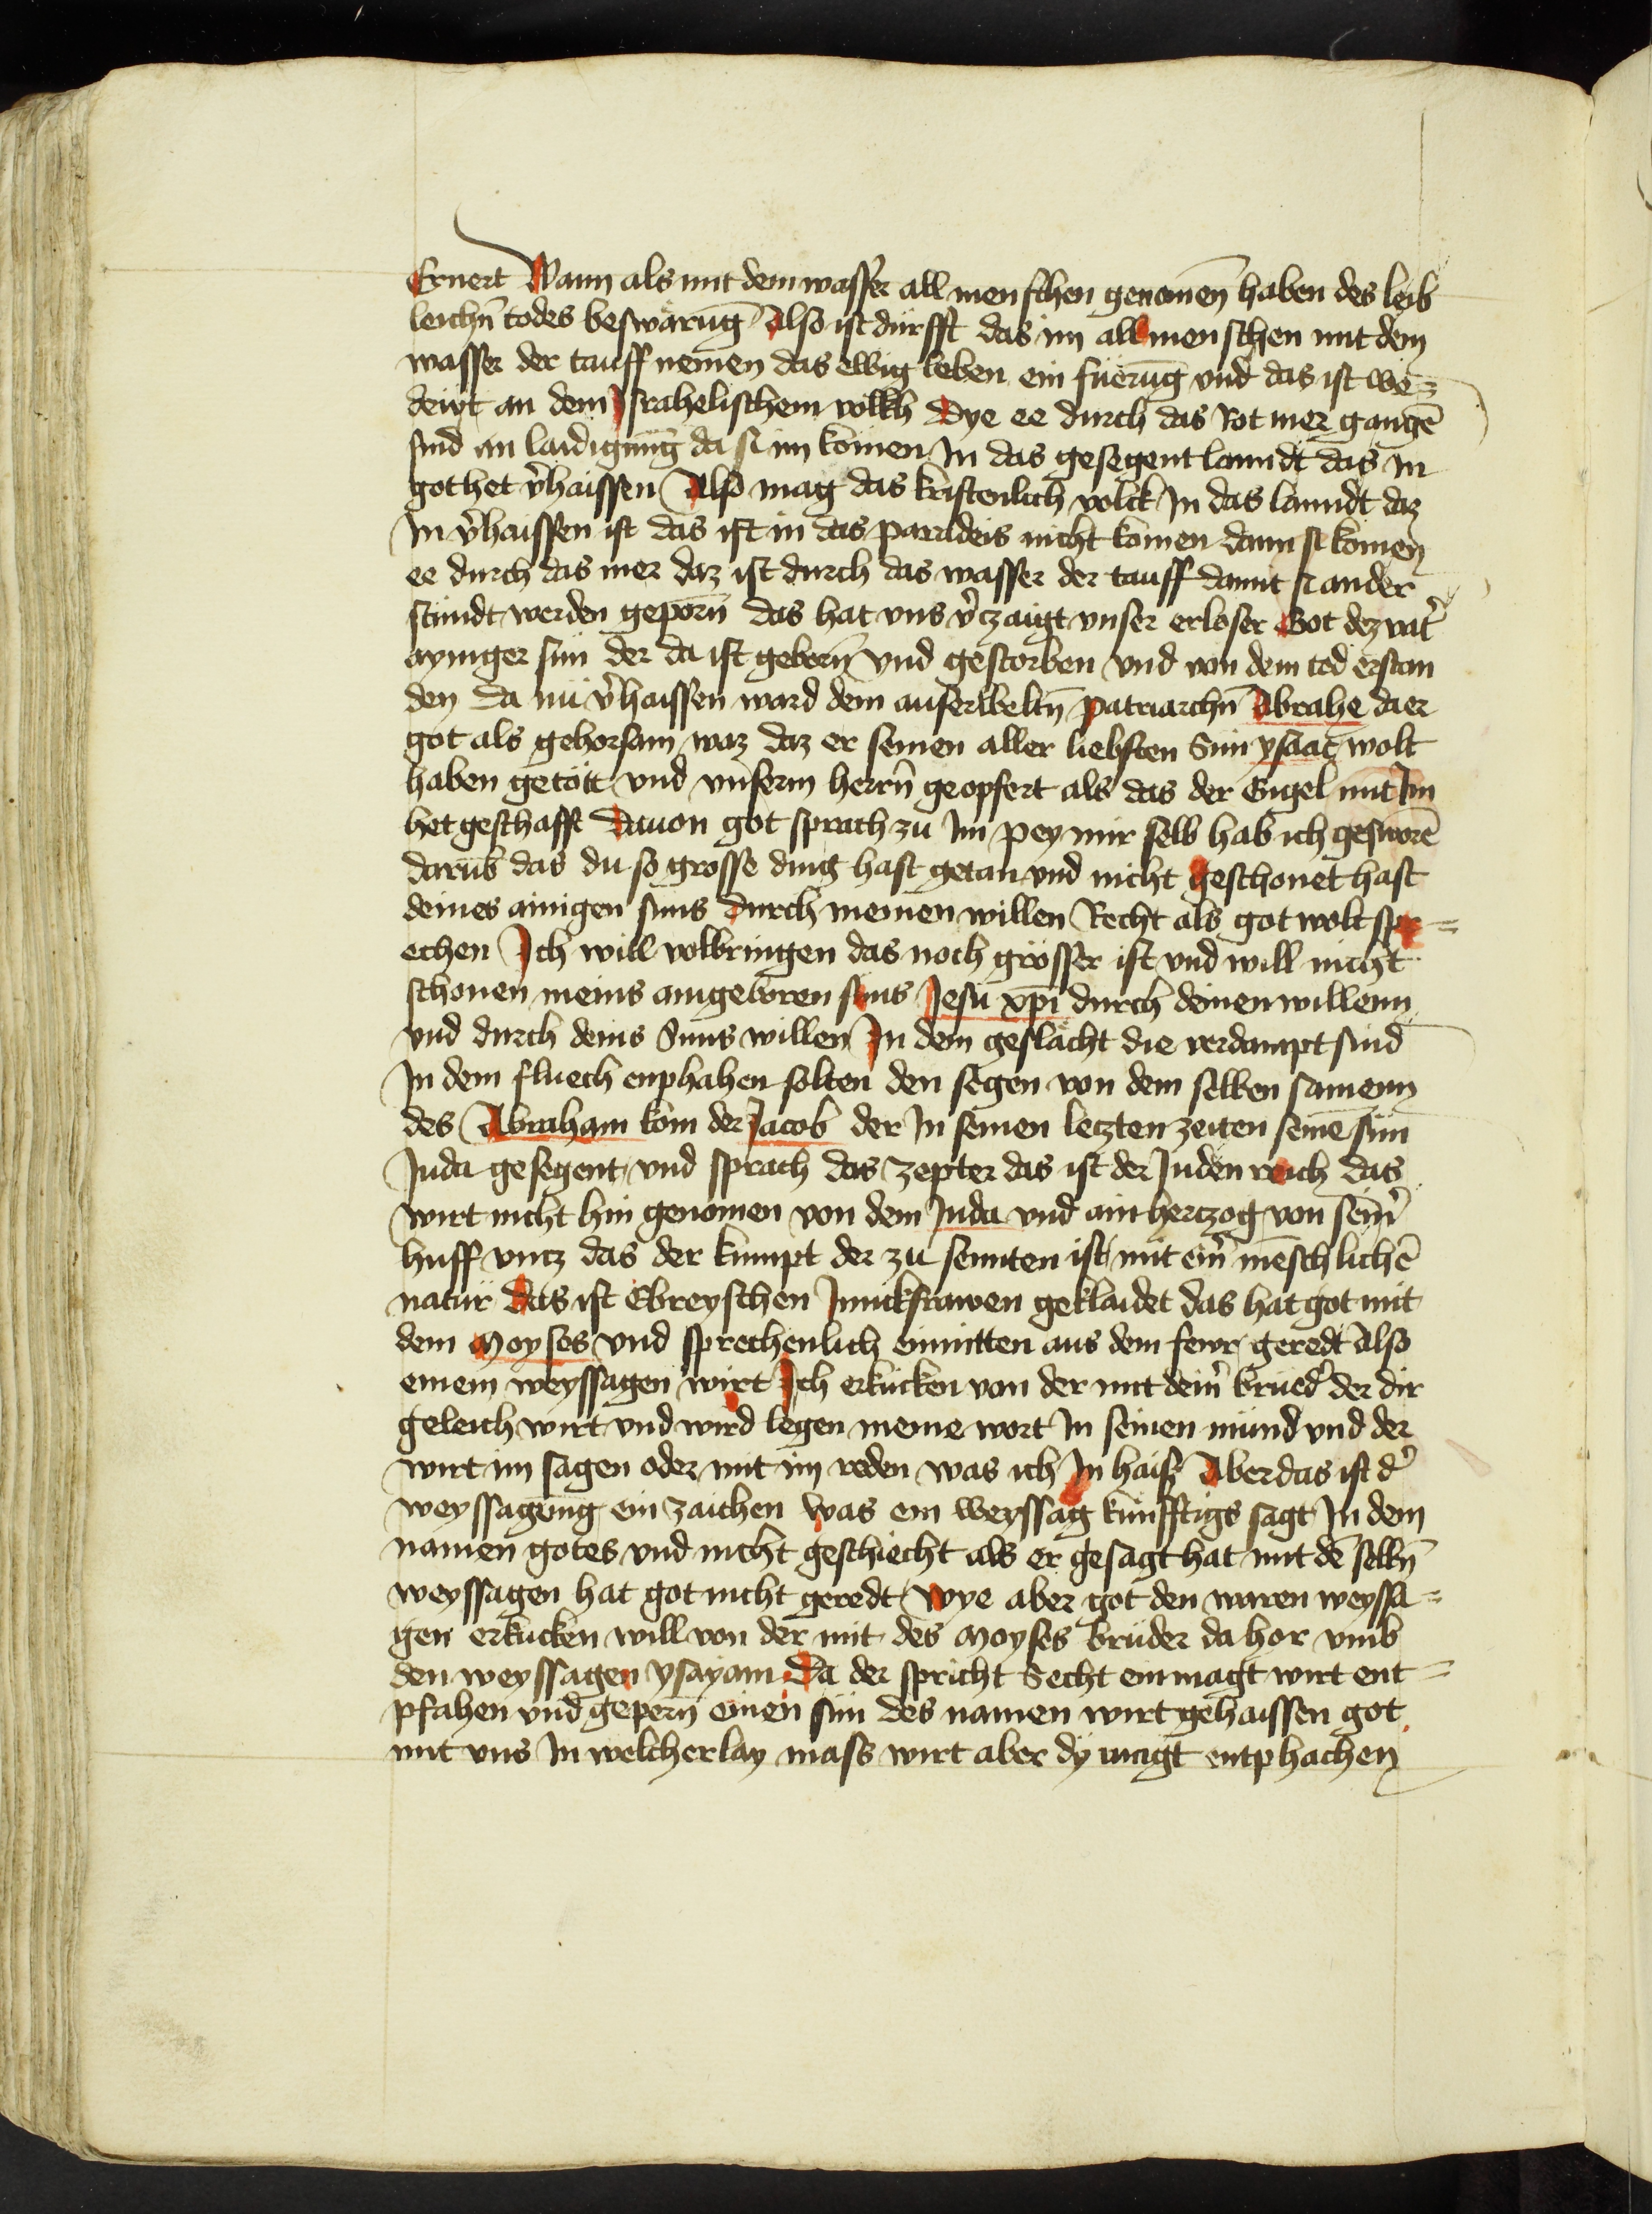 Ernert Wann als mit dem wasser all menschen genomen̄ haben des leib
leichn̄ todes beswärūg Also ist dürfft das im all menschen mit dem
wasser der tauff nemen das ewig leben ein füerūg vnd das ist we-
deẅt an dem Israhelischem volkh Dye ee durch das Rot mer gangē
sind an laidigung da si im komen In das gesegent lanndt das In
got het v̉haissen Also mag das kristenlich volck In das lanndt daz
In v̉haissen ist das ist in das paradeis nicht komen dann si komen
ee durch das mer daz ist durch das wasser der tauff damit si ander
stundt werden geporn̄ das hat vns v̉czaigt vnser erloser Got dez vat̉
ayniger sun der da ist geborn̄ vnd gestorben vnd von dem tod erstan
den Da nu v̉haissen ward dem auserweltn̄ patriarchn̄ Abrahe daer
got als gehorsam waz daz er seinen aller liebsten Sun ysaac wolt
haben getött vnd vnserm herrn̄ geopfert als das der Engel mit Im
het geschafft Dauon got sprach zu Im pey mir selb hab ich gesworē
darūb das du so grosse ding hast getan vnd nicht geschonet hast
deines ainigen suns durch meinen willen Recht als got wolt spr=
echen Ich will volbringen das noch grösser ist vnd will nicht
schonen meins aingeboren suns Jesu xp̄i durch deinen willenn
vnd durch deins Suns willen In dem geslächt die verdampt sind
In dem fluech enphahen solten den segen von dem selben samenn
des Abraham kom der Jacob der In seinen letzten zeiten seinē sun
Juda gesegent vnd sprach das zepter das ist der Juden reich das
wirt nicht hin genomen von dem Juda vnd ain herczog von sein̉
huff vncz das der kumpt der zu sennten ist mit ein̉ mēschlichē
natur Das ist Ebreyschen Junckfrawen geklaidet das hat got mit
dem Moyses vnd sprechenlich enmitten aus dem fewr geredt Also
einem weyssagen wirt Ich erkücken von der mit dein̉ brüed̉ der dir
geleich wirt vnd wird legen meine wort In seinen mund vnd der
wirt im sagen oder mit im reden was ich In haiß Aber das ist d̉
weyssagung ein zaichen was ein weyssag künfftigs sagt In dem
namen gotes vnd nicht geschiecht als er gesagt hat mit dē selbn̄
weyssagen hat got nicht geredt wye aber got den waren weyssa=
gen erkucken will von der mit des Moyses brüder da hor vmb
den weyssagen ysayam Da der spricht Secht ein magt wirt ent=
pfahen vnd gepern̄ einen sun des namen wirt gehaissen got
mit vns In welcherlay mass wirt aber dy magt entphachen